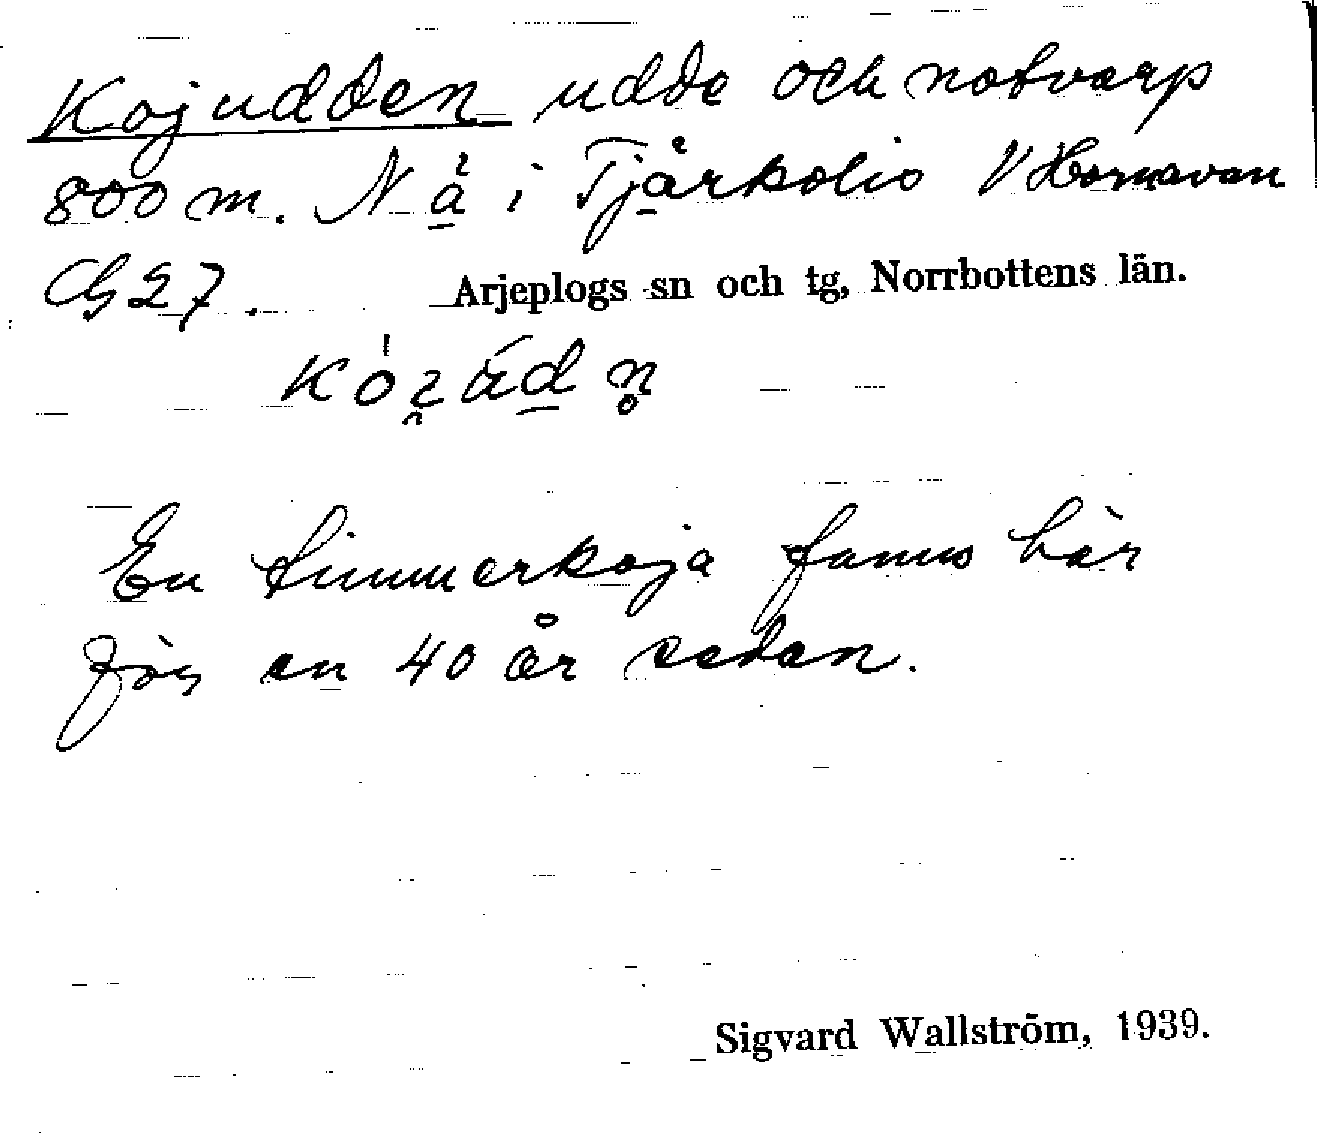 Kojudden udde och notvarp
800 m. N å i Tjårkolis V Hornavan
G 27. Arjeplogs sn och tg, Norrbottens län.
En timmerkoja fanns här
för en 40 år sedan.
Sigvard Wallström, 1939.